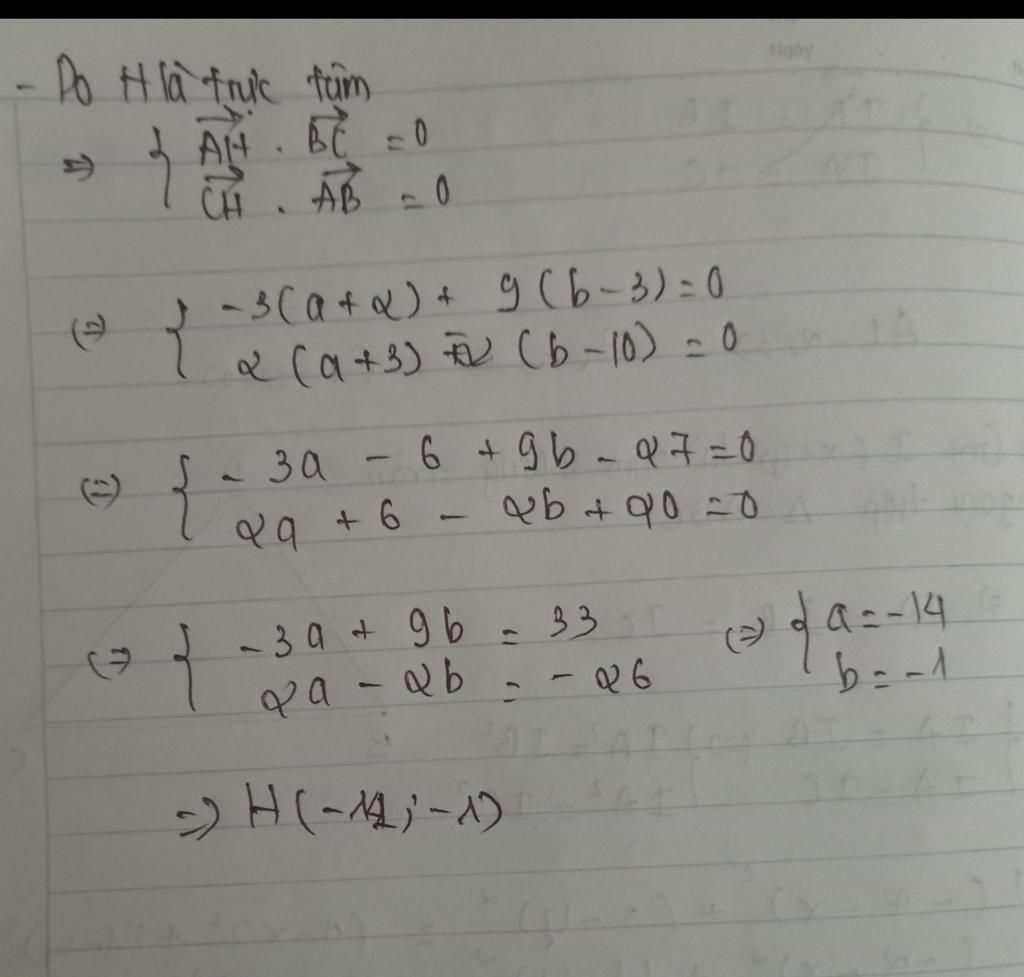 Ngày
- Do H là trực tâm
=> { AH . BC = 0
CH . AB = 0
(=) { -3(a+2) + 9(b-3) = 0
2(a+3) - 2(b-10) = 0
(=) { -3a - 6 + 9b - 27 = 0
2a + 6 - 2b + 20 = 0
(=) { -3a + 9b = 33 (=) { a = -14
2a - 2b = -26 b = -1
=> H(-14; -1)